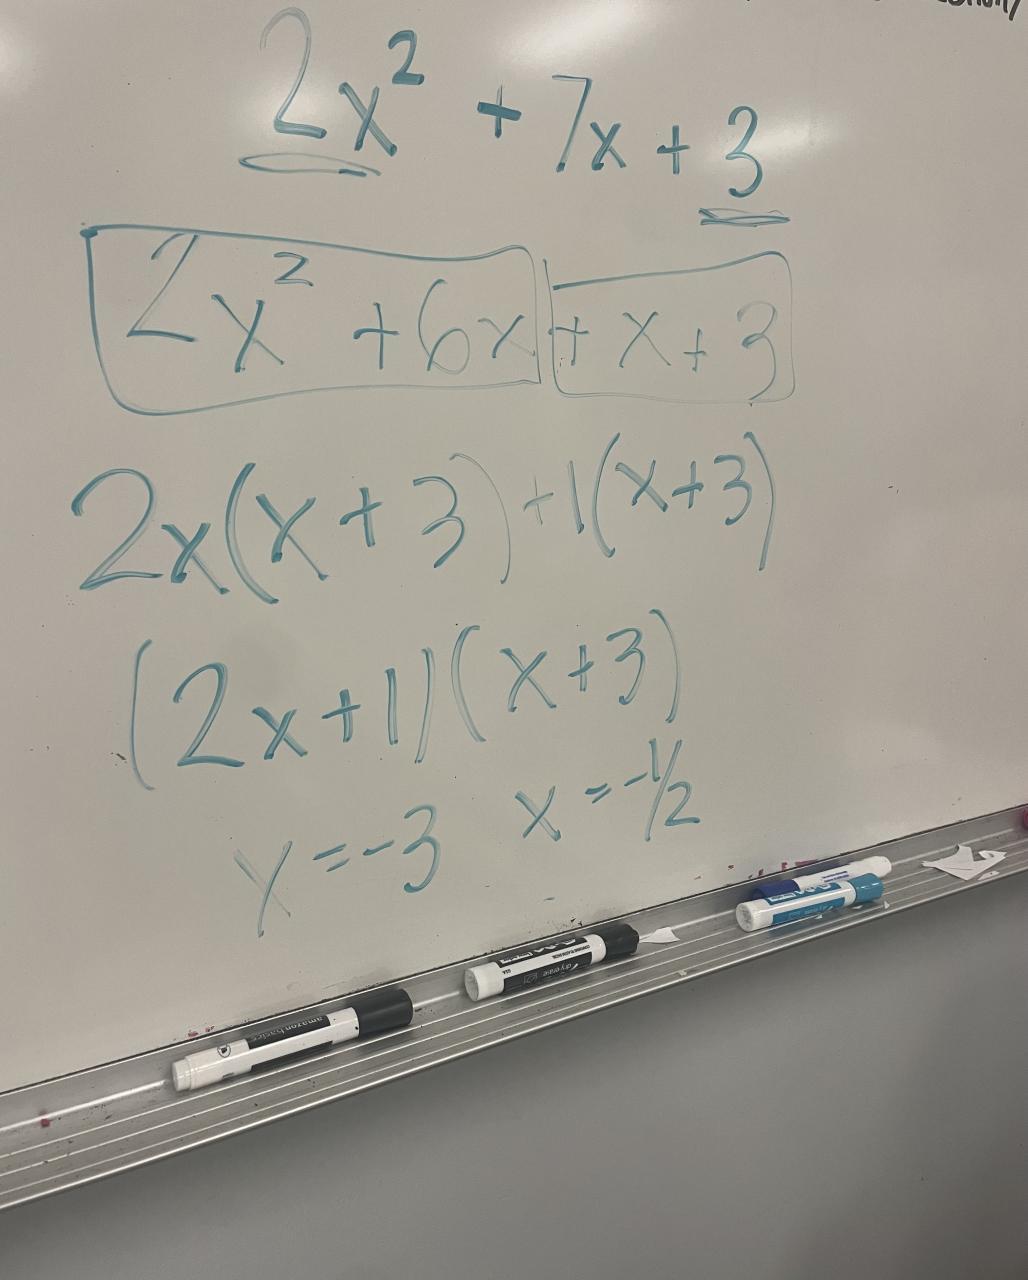 2x² + 7x + 3
2x² + 6x + x + 3
2x(x + 3) + 1(x+3)
(2x+1)(x+3)
x = -3 x = -1/2
amazon basics
dry erase